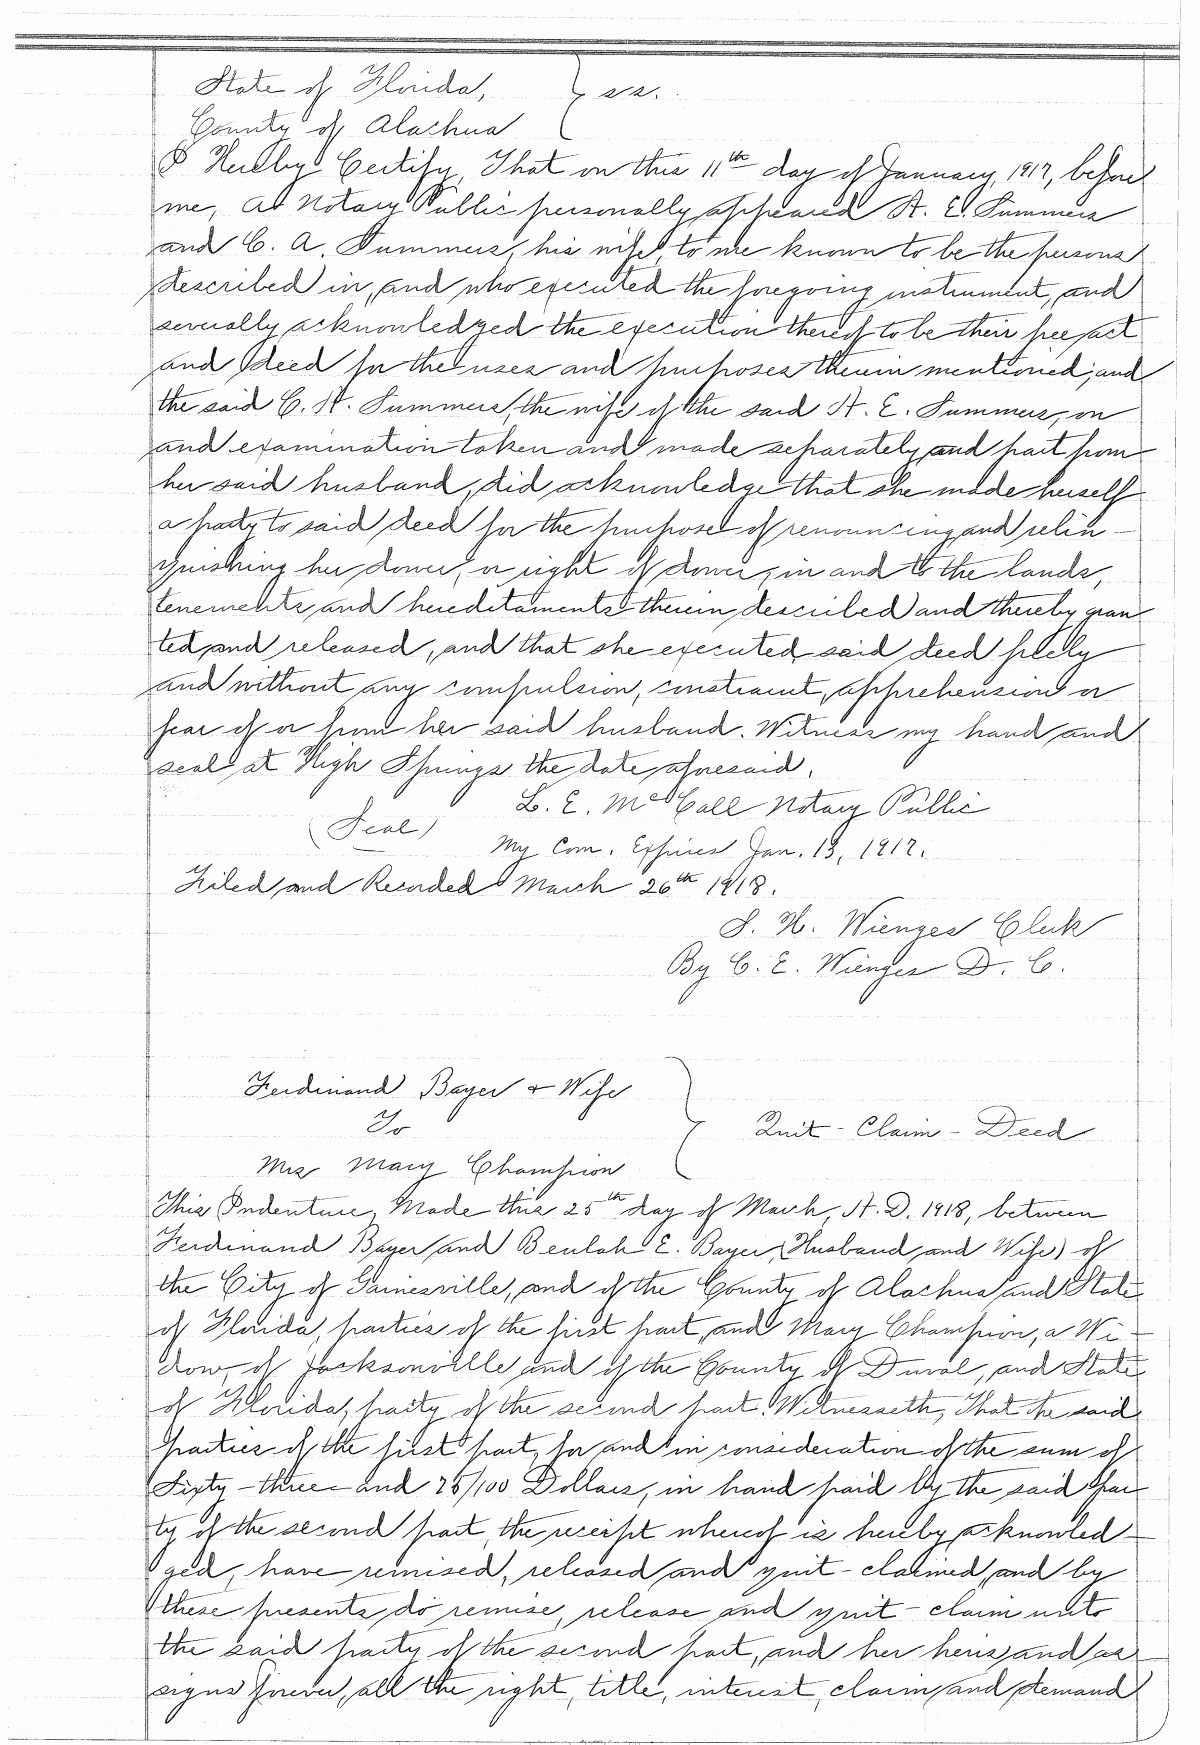 State of Florida, } ss.
County of Alachua
I Hereby Certify, That on this 11th day of January, 1917, before
me, a Notary Public personally appeared A. E. Summers
and C. A. Summers, his wife, to me known to be the persons
described in, and who executed the foregoing instrument, and
severally acknowledged the execution thereof to be their free act
and deed for the uses and purposes therein mentioned; and
the said C. A. Summers, the wife of the said A. E. Summers, on
and examination taken and made separately and part from
her said husband, did acknowledge that she made herself
a party to said deed for the purpose of renouncing and relin-
quishing her dower, or right of dower, in and to the lands,
tenements and hereditaments therein described and thereby gran
ted and released, and that she executed said deed freely
and without any compulsion, constraint, apprehension or
fear of or from her said husband. Witness my hand and
seal at High Springs the date aforesaid.
L. E. McCall Notary Public
(Seal)
My Com. Expires Jan. 13, 1917.
Filed and Recorded March 26th 1918.
S. H. Wienges Clerk
By C. E. Wienges D. C.
Ferdinand Bayer + Wife
To } Quit-Claim-Deed
Mrs Mary Champion
This Indenture, Made this 25th day of March, A. D. 1918, between
Ferdinand Bayer and Beulah E. Bayer, (Husband and Wife) of
the City of Gainesville, and of the County of Alachua and State
of Florida, parties of the first part, and Mary Champion, a Wi-
dow, of Jacksonville and of the County of Duval, and State
of Florida, party of the second part. Witnesseth, That the said
parties of the first part, for and in consideration of the sum of
Sixty-three and 75/100 Dollars, in hand paid by the said par
ty of the second part, the receipt whereof is hereby acknowled-
ged, have remised, released and quit-claimed, and by
these presents do remise, release and quit-claim unto
the said party of the second part, and her heris and as
signs forever, all the right, title, interest, claim and demand